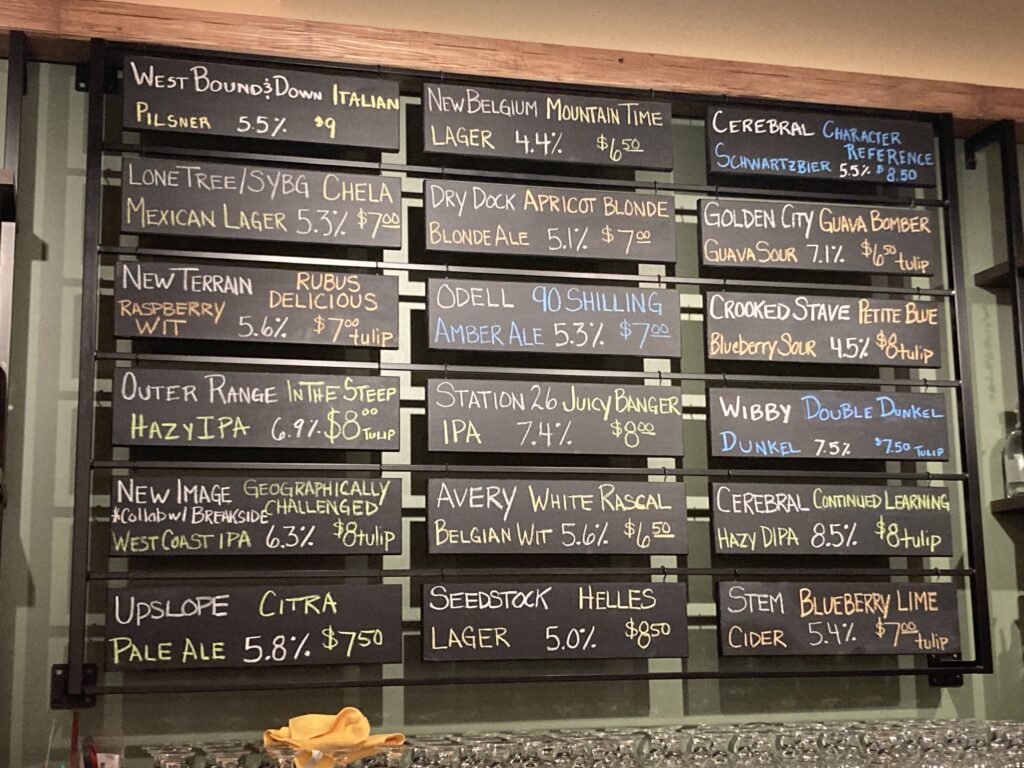 West Bound & Down Italian
Pilsner 5.5% $9
Lone Tree/SYBG Chela
Mexican Lager 5.3% $7.00
New Terrain Rubus Delicious
Raspberry Wit 5.6% $7.00 tulip
Outer Range In The Steep
Hazy IPA 6.9% $8.00 Tulip
New Image Geographically Challenged
*Collab w/ Breakside
West Coast IPA 6.3% $8 tulip
Upslope Citra
Pale Ale 5.8% $7.50
New Belgium Mountain Time
Lager 4.4% $6.50
Dry Dock Apricot Blonde
Blonde Ale 5.1% $7.00
Odell 90 Shilling
Amber Ale 5.3% $7.00
Station 26 Juicy Banger
IPA 7.4% $8.00
Avery White Rascal
Belgian Wit 5.6% $6.50
Seedstock Helles
Lager 5.0% $8.50
Cerebral Character Reference
Schwartzbier 5.5% $8.50
Golden City Guava Bomber
Guava Sour 7.1% $6.50 tulip
Crooked Stave Petite Blue
Blueberry Sour 4.5% $8 tulip
Wibby Double Dunkel
Dunkel 7.5% $7.50 Tulip
Cerebral Continued Learning
Hazy DIPA 8.5% $8 tulip
Stem Blueberry Lime
Cider 5.4% $7.00 tulip